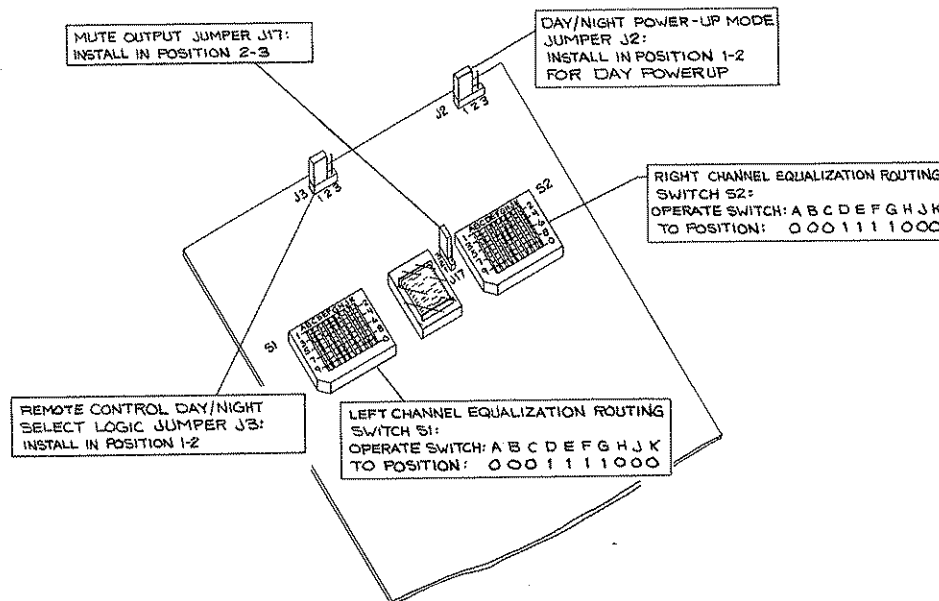 MUTE OUTPUT JUMPER J17:
INSTALL IN POSITION 2-3
DAY/NIGHT POWER-UP MODE
JUMPER J2:
INSTALL IN POSITION 1-2
FOR DAY POWERUP
J2
1 2 3
J3
1 2 3
RIGHT CHANNEL EQUALIZATION ROUTING
SWITCH S2:
OPERATE SWITCH: A B C D E F G H J K
TO POSITION: 0 0 0 1 1 1 1 0 0 0
S2
J17
S1
ABCDEFGHJK
REMOTE CONTROL DAY/NIGHT
SELECT LOGIC JUMPER J3:
INSTALL IN POSITION 1-2
LEFT CHANNEL EQUALIZATION ROUTING
SWITCH S1:
OPERATE SWITCH: A B C D E F G H J K
TO POSITION: 0 0 0 1 1 1 1 0 0 0